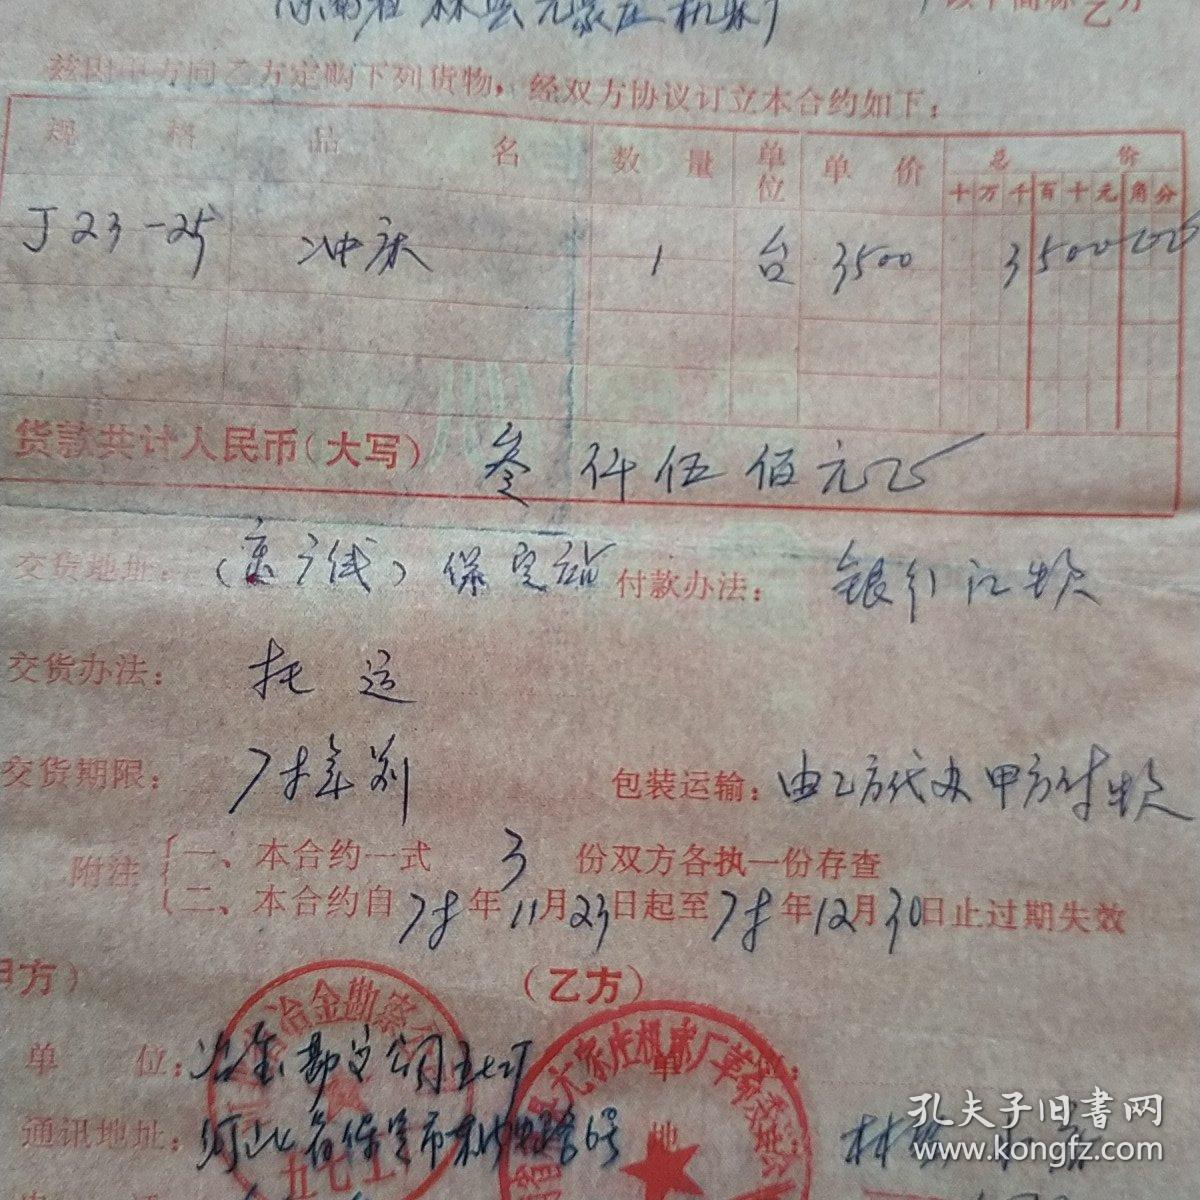 河南省林县元家庄机床厂 (以下简称乙方
兹因甲方向乙方定购下列货物，经双方协议订立本合约如下：
规格 品名 数量 单位 单价 总价
十万千百十元角分
J23-25 冲床 1 台 3500 3500 00
货款共计人民币(大写) 叁仟伍佰元正
交货地址： (京广线) 保定站 付款办法： 银行汇款
交货办法： 托运
交货期限： 78年前 包装运输： 由乙方代办 甲方付款
附注 一、本合约一式 3 份双方各执一份存查
二、本合约自 78 年 11 月 23 日起至 78 年 12 月 30 日止过期失效
甲方) (乙方)
单位： 冶金勘察公司五七厂
通讯地址： 河北省保定市 路6号
冶金勘察公
五七工
元家庄机床厂革命委员会
孔夫子旧书网
www.kongfz.com